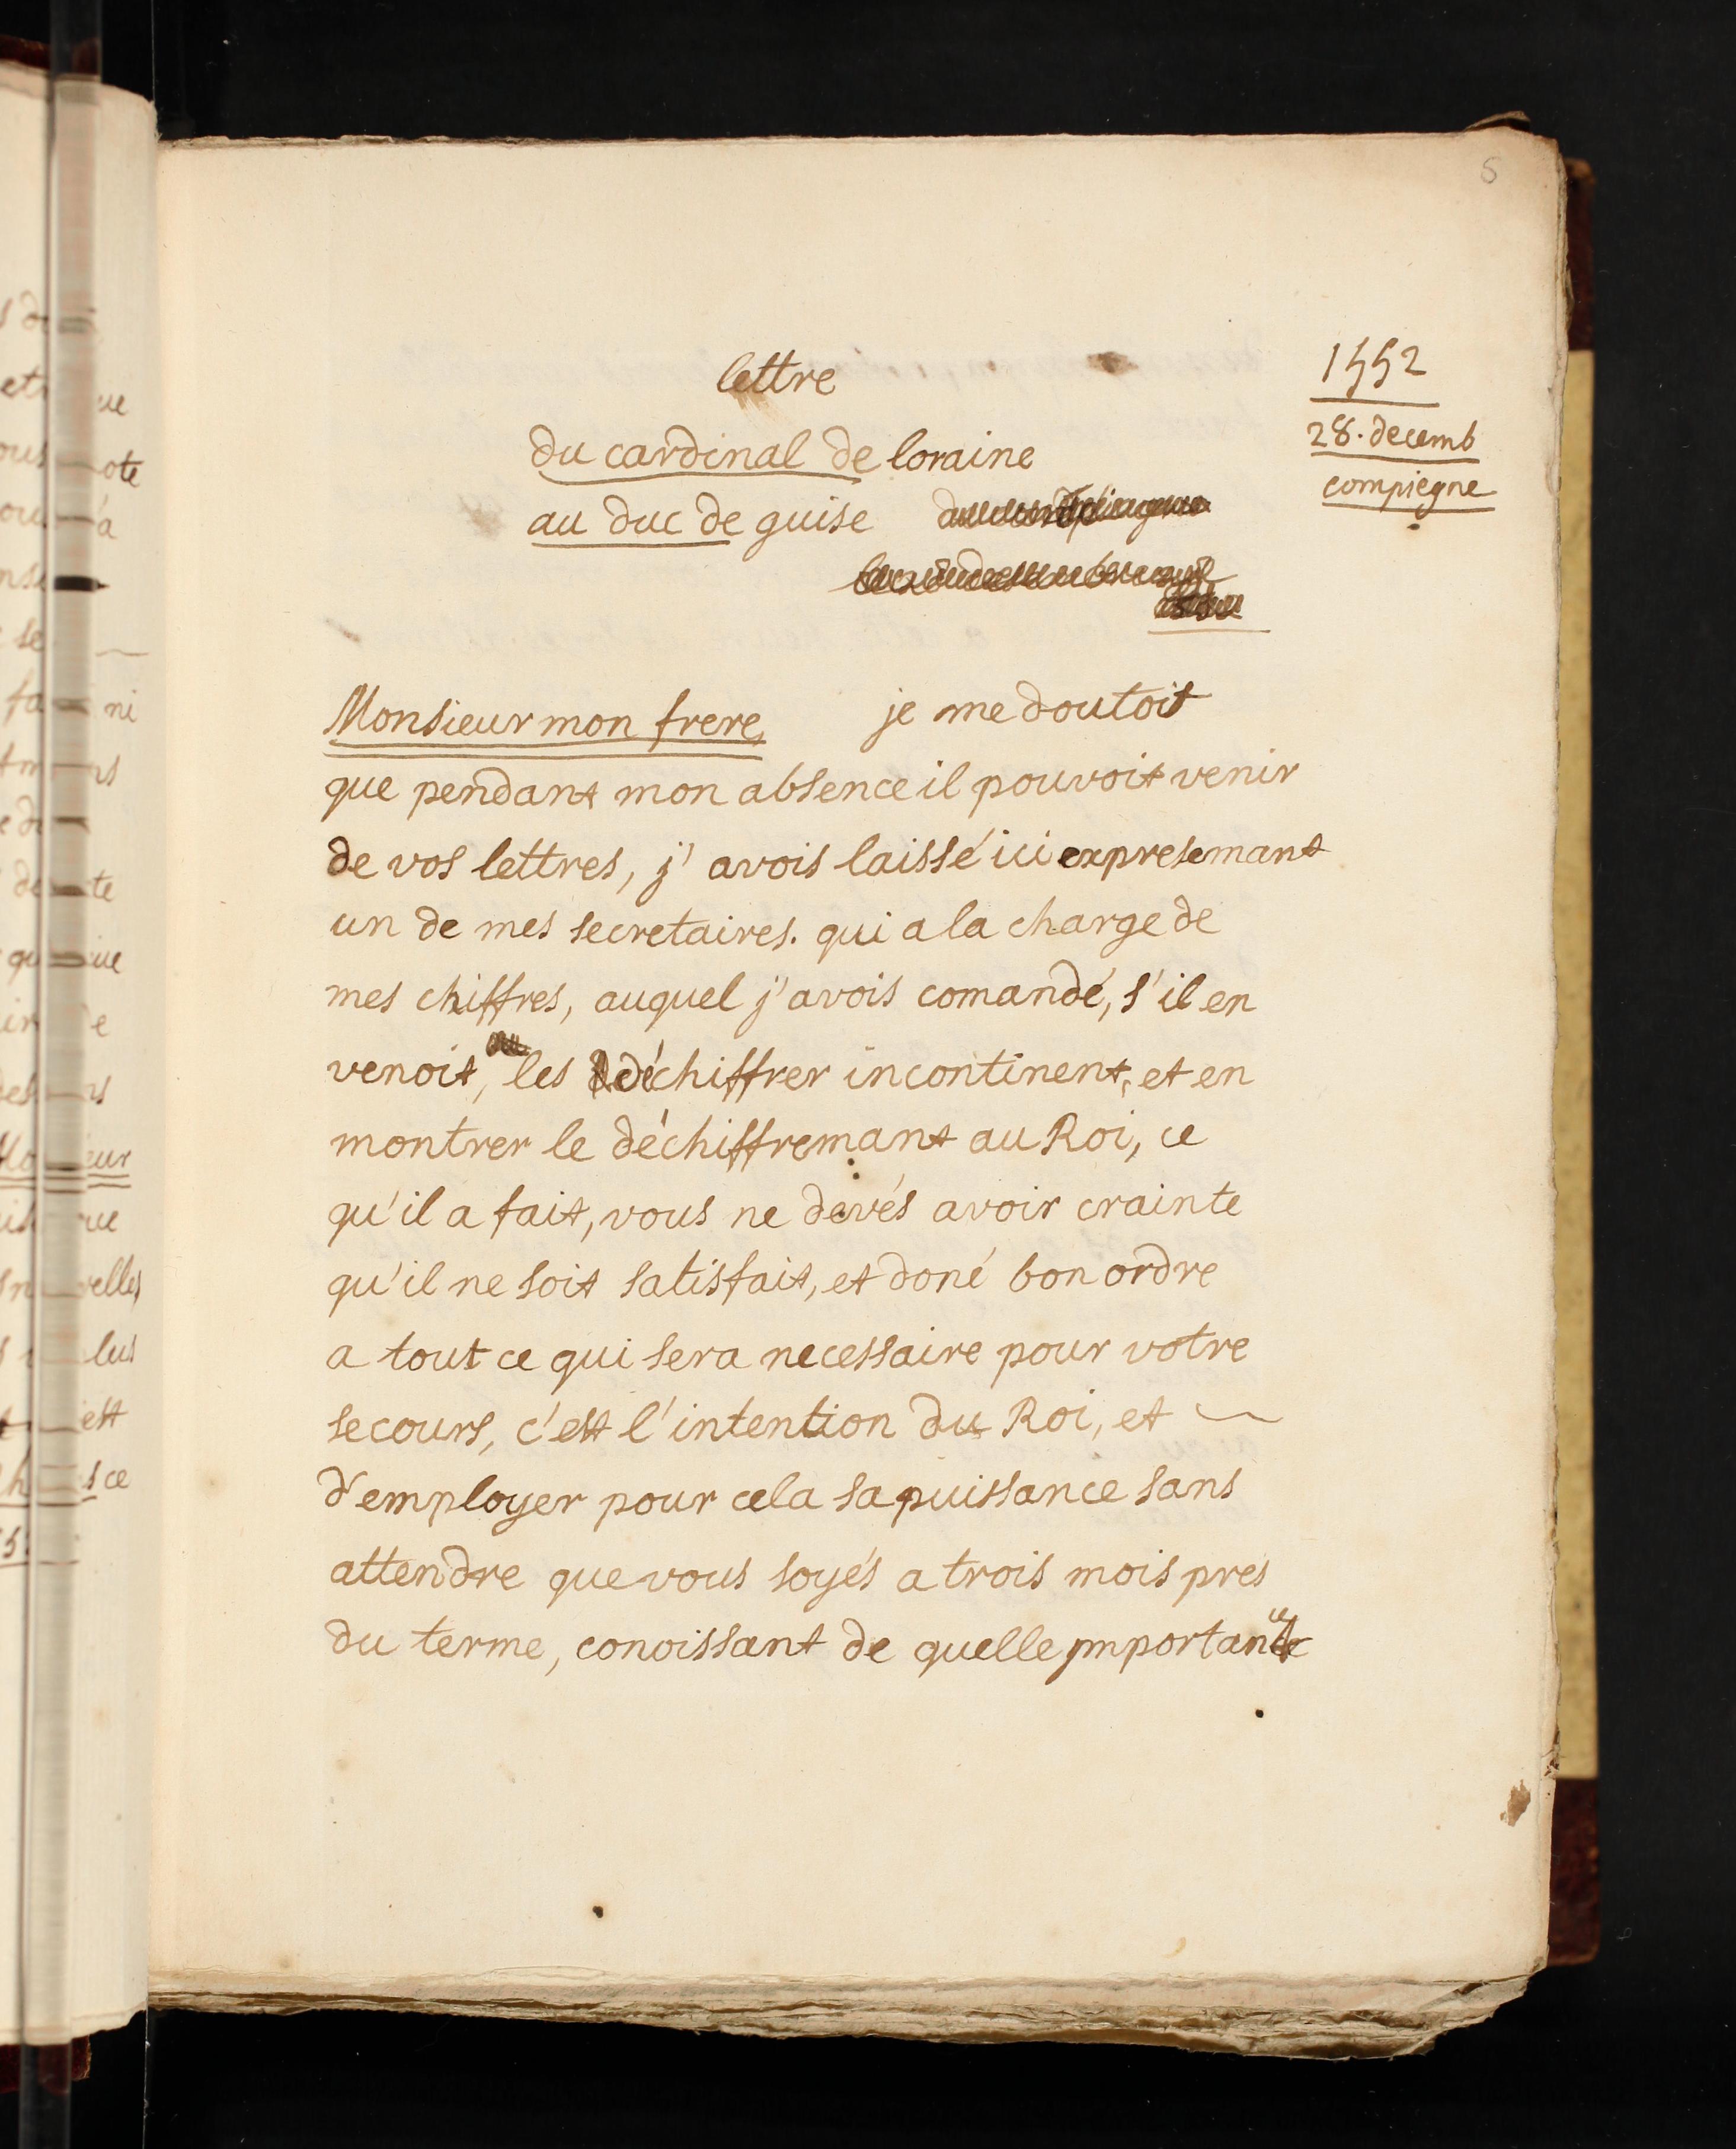 5
lettre
1552
28. decemb
compiegne
du cardinal de loraine
au duc de guise
Monsieur mon frere, je me doutoit
que pendant mon absence il pouvoit venir
de vos lettres, j' avois laissé ici expresemant
un de mes secretaires. qui a la charge de
mes chiffres, auquel j'avois comandé, s'il en
venoit, les déchiffrer incontinent, et en
montrer le déchiffremant au Roi, ce
qu'il a fait, vous ne devés avoir crainte
qu'il ne soit satisfait, et doné bon ordre
a tout ce qui sera necessaire pour votre
secours, c'est l'intention du Roi, et
d'employer pour cela sa puissance sans
attendre que vous soyés a trois mois pres
du terme, conoissant de quelle importance